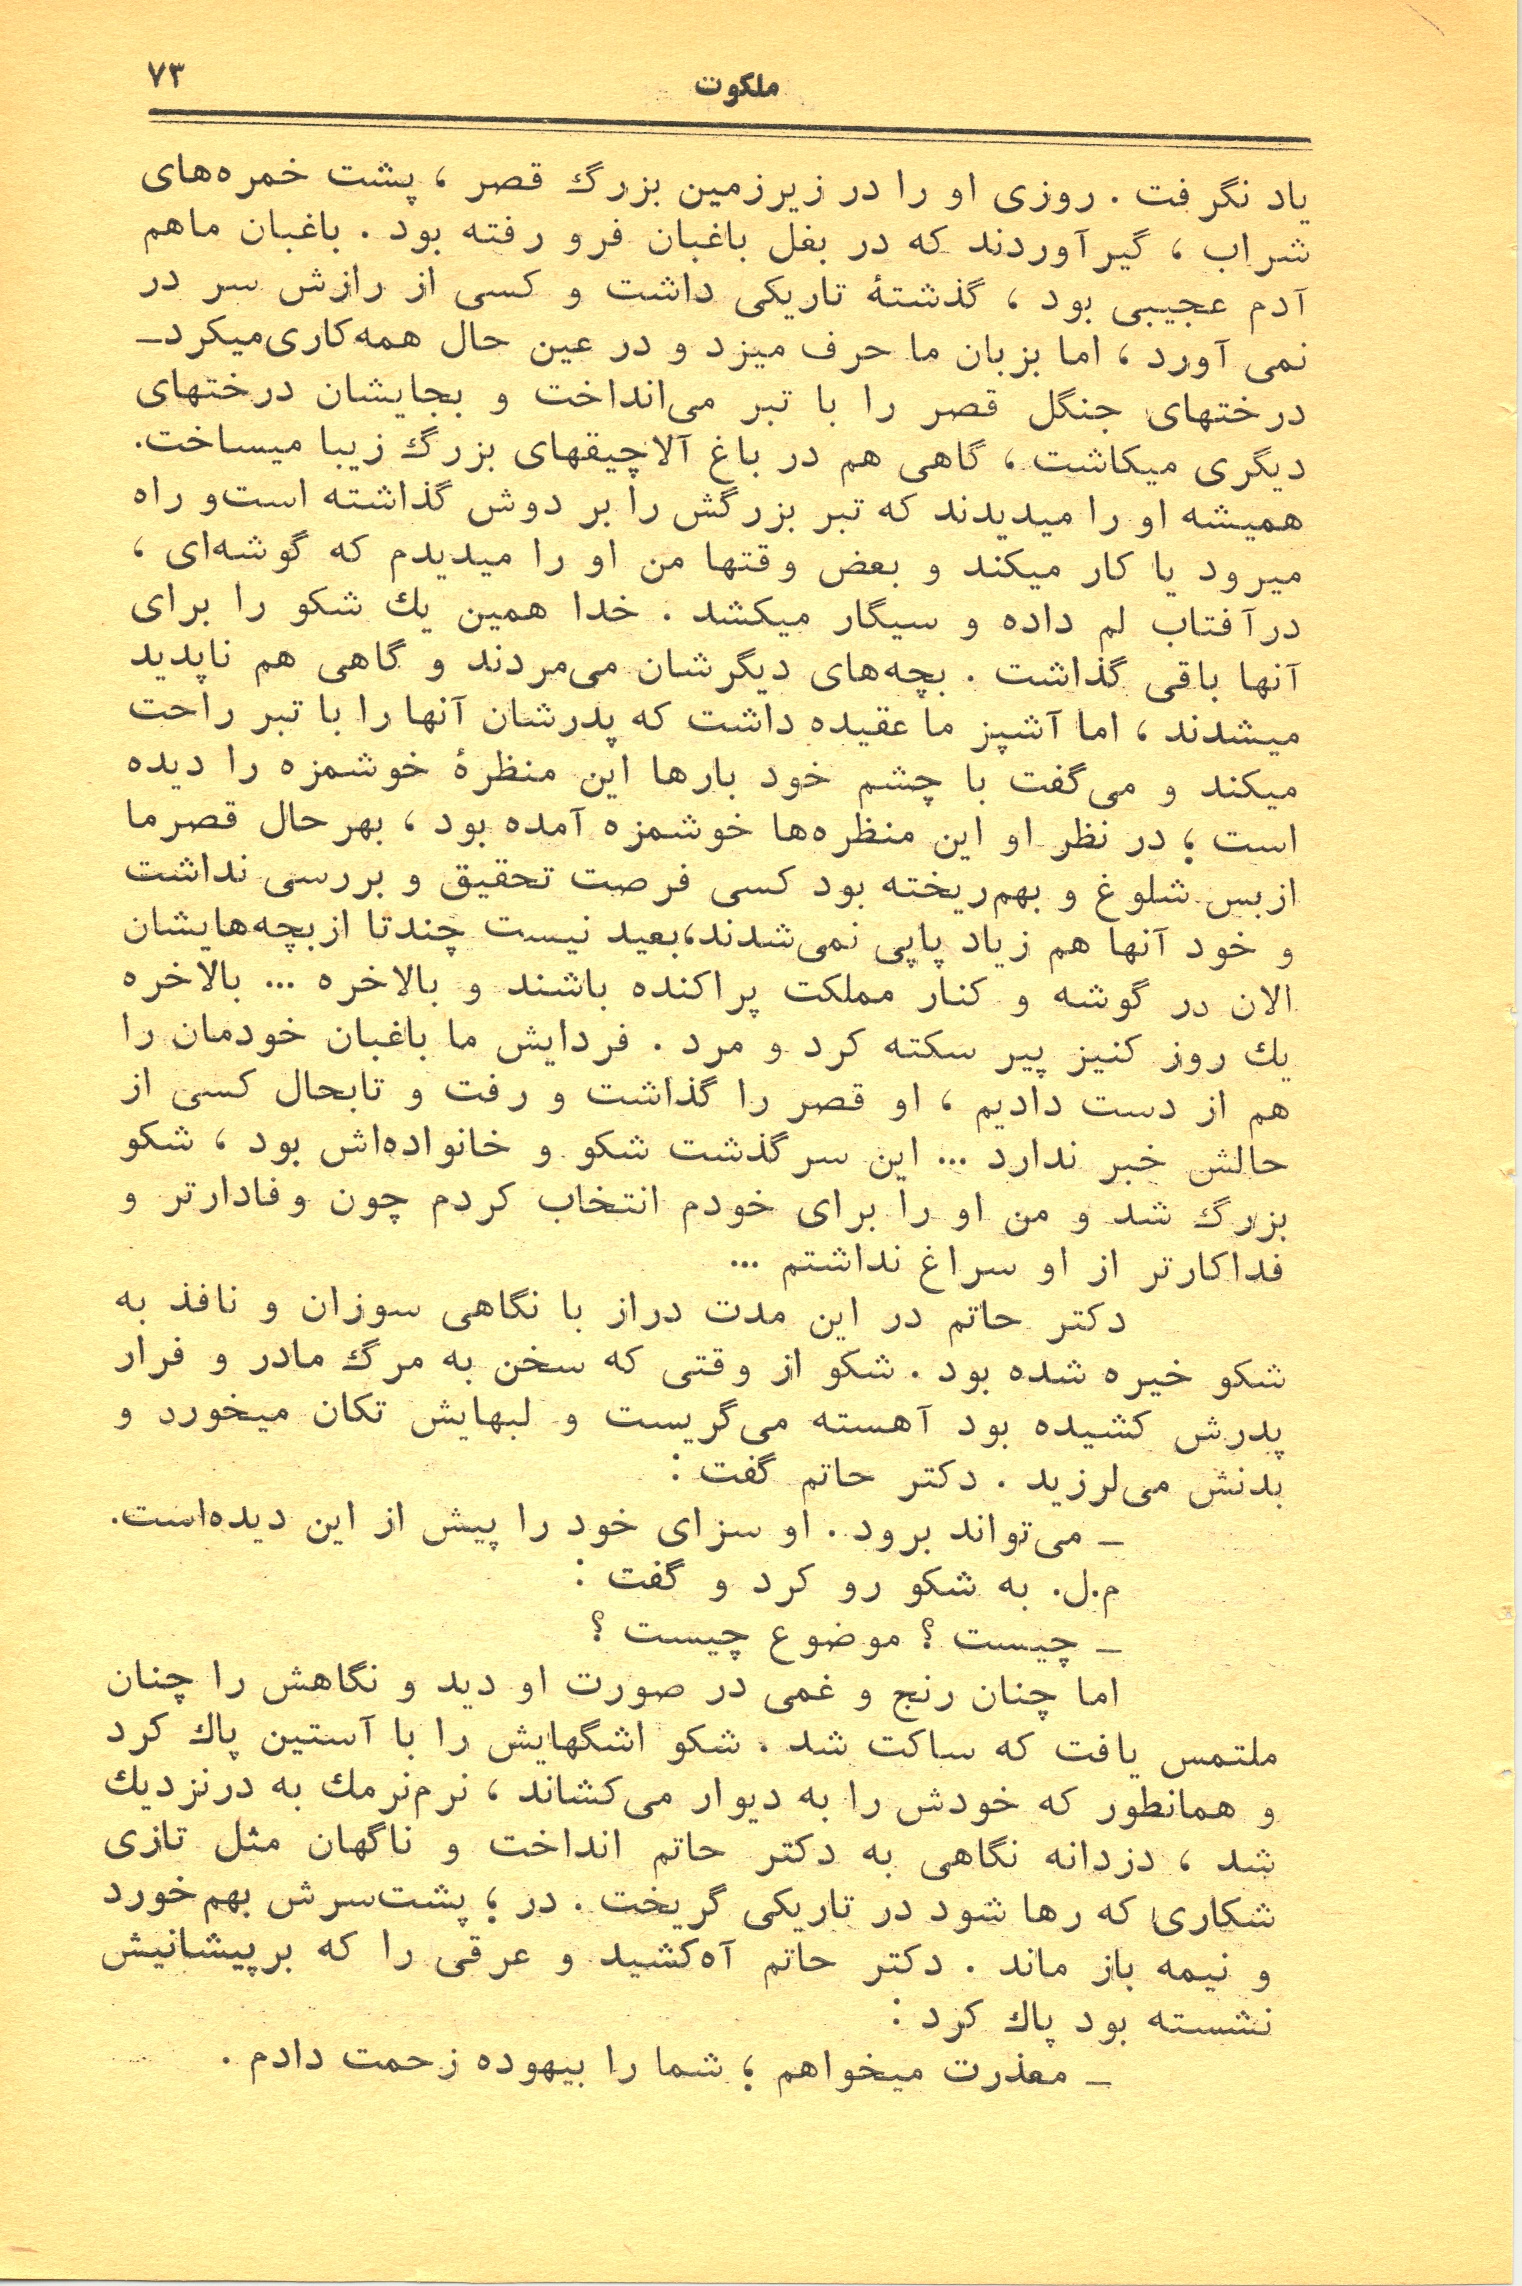 ملکوت
۷۳
یاد نگرفت . روزی او را در زیرزمین بزرگ قصر ، پشت خمره‌های
شراب ، گیرآوردند که در بغل باغبان فرو رفته بود . باغبان ماهم
آدم عجیبی بود ، گذشتهٔ تاریکی داشت و کسی از رازش سر در
نمی آورد ، اما بزبان ما حرف میزد و در عین حال همه‌کاری‌میکرد_
درختهای جنگل قصر را با تبر می‌انداخت و بجایشان درختهای
دیگری میکاشت ، گاهی هم در باغ آلاچیقهای بزرگ زیبا میساخت.
همیشه او را میدیدند که تبر بزرگش را بر دوش گذاشته است‌و راه
میرود یا کار میکند و بعض وقتها من او را میدیدم که گوشه‌ای ،
درآفتاب لم داده و سیگار میکشد . خدا همین یك شکو را برای
آنها باقی گذاشت . بچه‌های دیگرشان می‌مردند و گاهی هم ناپدید
میشدند ، اما آشپز ما عقیده داشت که پدرشان آنها را با تبر راحت
میکند و می‌گفت با چشم خود بارها این منظرهٔ خوشمزه را دیده
است ؛ در نظر او این منظره‌ها خوشمزه آمده بود ، بهرحال قصرما
ازبس شلوغ و بهم‌ریخته بود کسی فرصت تحقیق و بررسی نداشت
و خود آنها هم زیاد پاپی نمی‌شدند،بعید نیست چندتا ازبچه‌هایشان
الان در گوشه و کنار مملکت پراکنده باشند و بالاخره ... بالاخره
یك روز کنیز پیر سکته کرد و مرد . فردایش ما باغبان خودمان را
هم از دست دادیم ، او قصر را گذاشت و رفت و تابحال کسی از
حالش خبر ندارد ... این سرگذشت شکو و خانواده‌اش بود ، شکو
بزرگ شد و من او را برای خودم انتخاب کردم چون وفادارتر و
فداکارتر از او سراغ نداشتم ...
دکتر حاتم در این مدت دراز با نگاهی سوزان و نافذ به
شکو خیره شده بود . شکو از وقتی که سخن به مرگ مادر و فرار
پدرش کشیده بود آهسته می‌گریست و لبهایش تکان میخورد و
بدنش می‌لرزید . دکتر حاتم گفت :
_ می‌تواند برود . او سزای خود را پیش از این دیده‌است.
م.ل. به شکو رو کرد و گفت :
_ چیست ؟ موضوع چیست ؟
اما چنان رنج و غمی در صورت او دید و نگاهش را چنان
ملتمس یافت که ساکت شد . شکو اشگهایش را با آستین پاك کرد
و همانطور که خودش را به دیوار می‌کشاند ، نرم‌نرمك به درنزدیك
شد ، دزدانه نگاهی به دکتر حاتم انداخت و ناگهان مثل تازی
شکاری که رها شود در تاریکی گریخت . در ؛ پشت‌سرش بهم‌خورد
و نیمه باز ماند . دکتر حاتم آه‌کشید و عرقی را که برپیشانیش
نشسته بود پاك کرد :
_ معذرت میخواهم ؛ شما را بیهوده زحمت دادم .